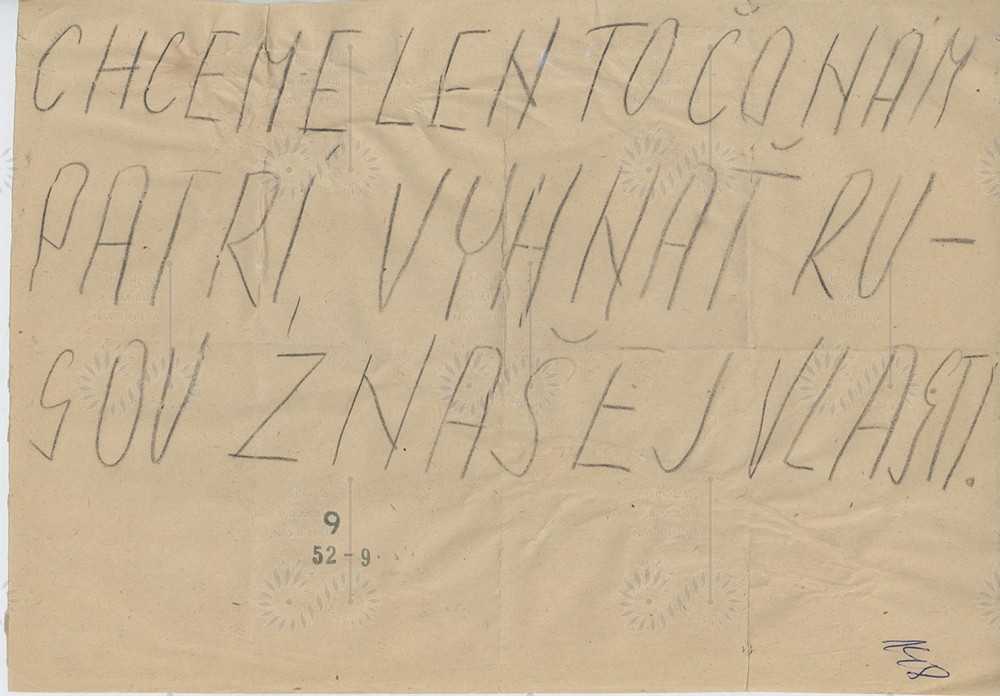 CHCEME LEN TO ČO NÁM
PATRÍ, VYHNAŤ RU-
SOV Z NAŠEJ VLASTI.
9
52-9